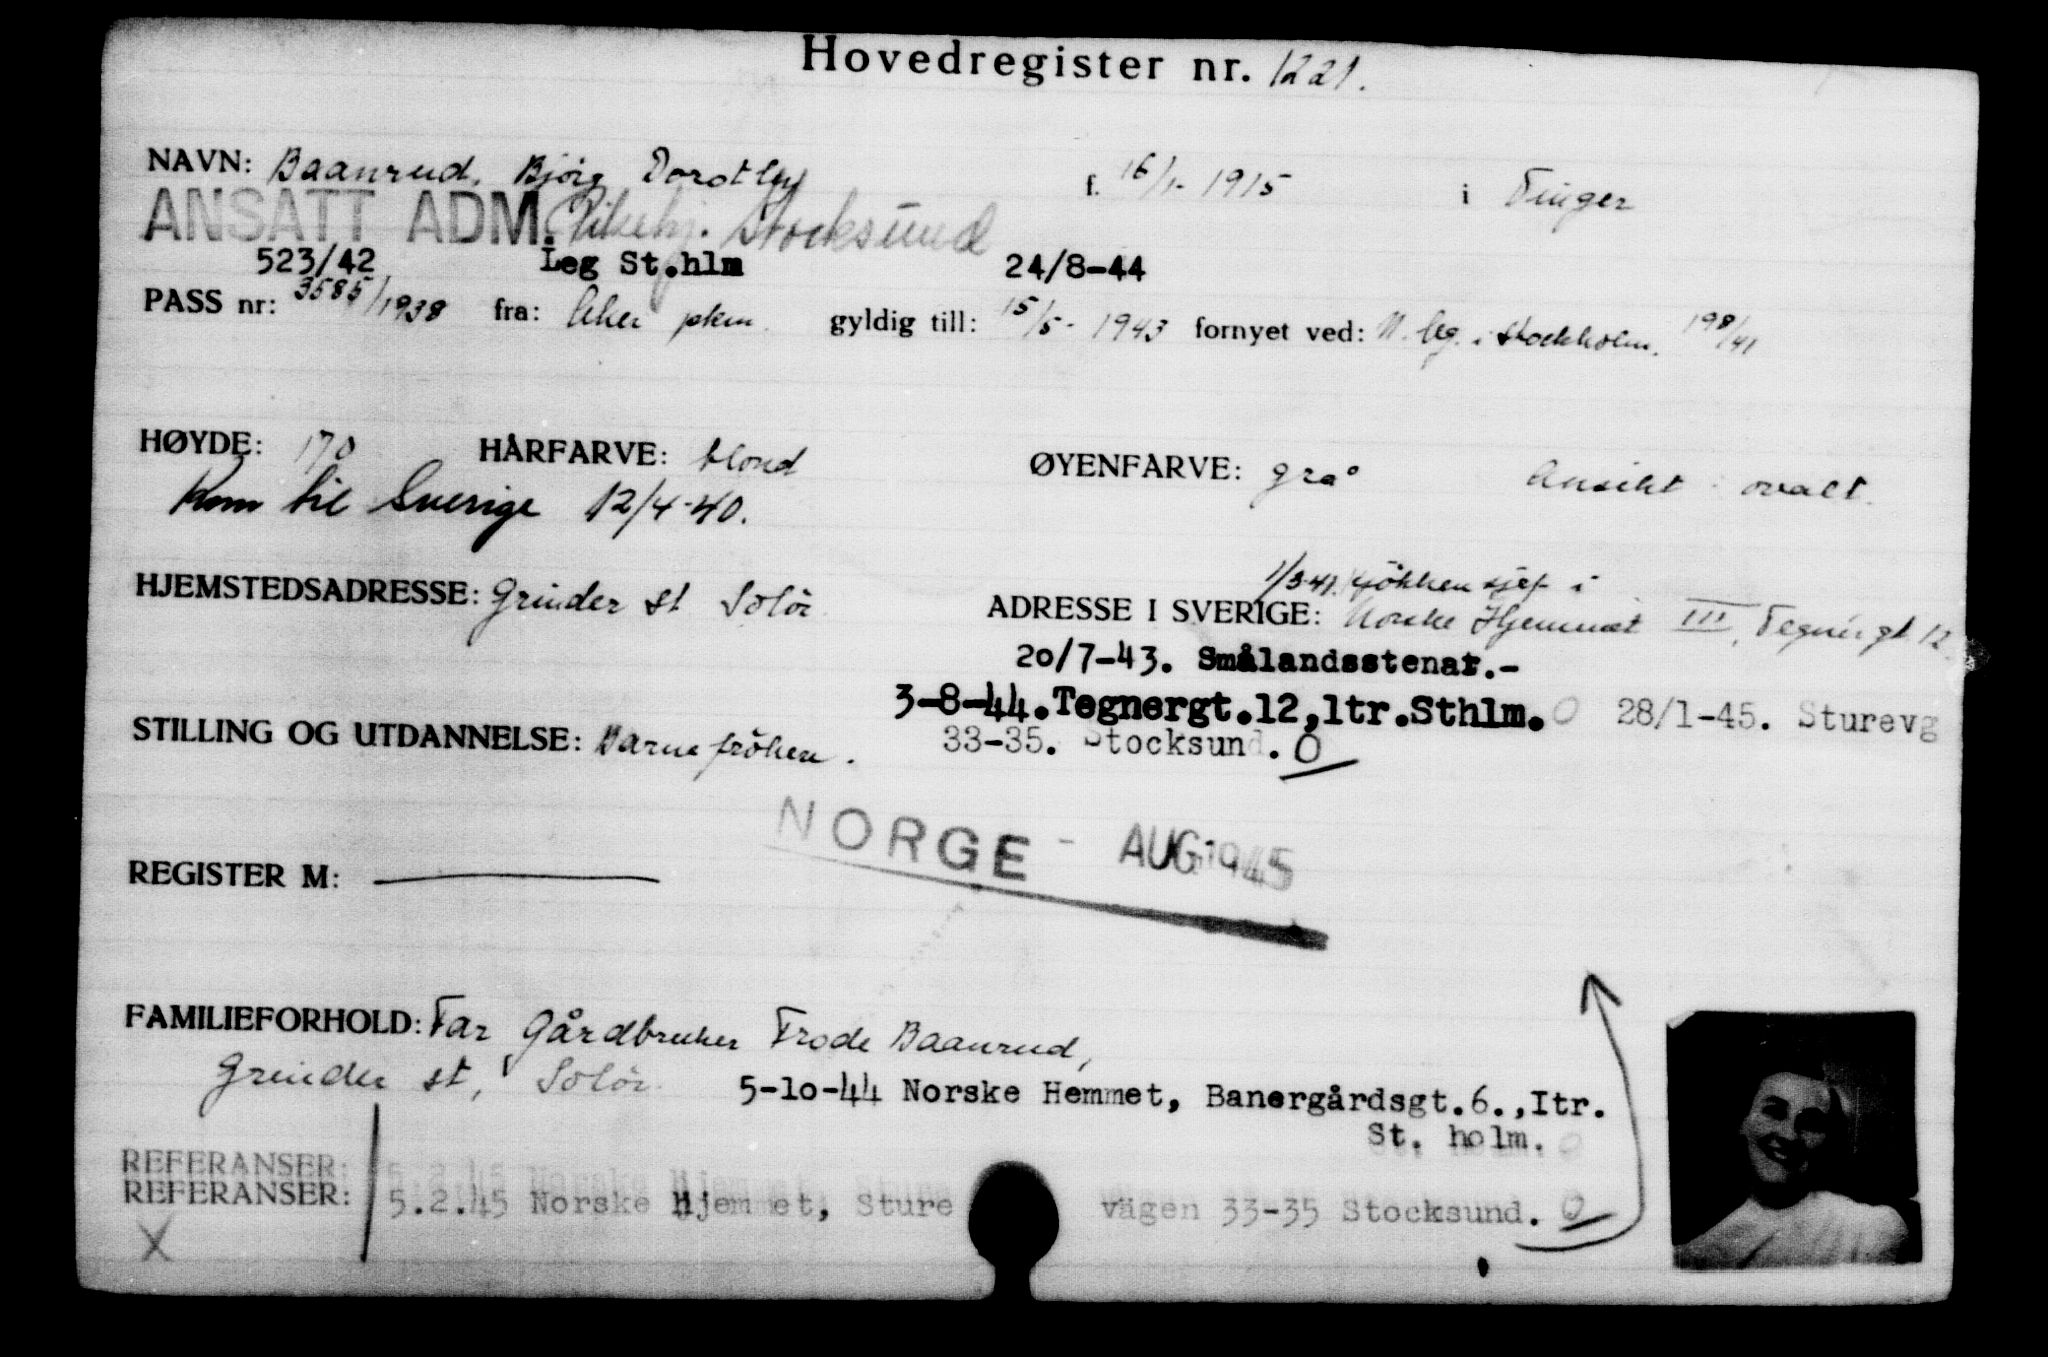 Hovedregister nr. 1221.
NAVN: Baanrud, Bjørg Dorothy f. 16/1- 1915 i Vinger
ANSATT ADM. Pikehj. Stocksund
523/42 Leg St.hlm 24/8-44
PASS nr: 3585/1938 fra: Aker pkm. gyldig till: 15/5- 1943 fornyet ved: N. leg. i Stockholm. 198/41
HØYDE: 170 HÅRFARVE: blond ØYENFARVE: grå Ansikt: ovalt.
Kom til Sverige 12/4-40.
1/3-41. Kjøkkensjef i
HJEMSTEDSADRESSE: Grinder st Solør ADRESSE I SVERIGE: Norske Hjemmet III, Tegnérgt 12.
20/7-43. Smålandsstenar.-
3-8-44.Tegnergt.12,1tr.Sthlm. O 28/1-45. Sturevg
STILLING OG UTDANNELSE: Barnefrøken. 33-35. Stocksund. O
NORGE - AUG 1945
REGISTER M:
FAMILIEFORHOLD: Far Gårdbruker Frode Baanrud,
Grinder st, Solør.
5-10-44 Norske Hemmet, Banergårdsgt.6.,Itr.
St. holm. O
REFERANSER: 5.2.45 Norske Hjemmet, Sture
REFERANSER: 5.2.45 Norske Hjemmet, Sture vägen 33-35 Stocksund. O
X